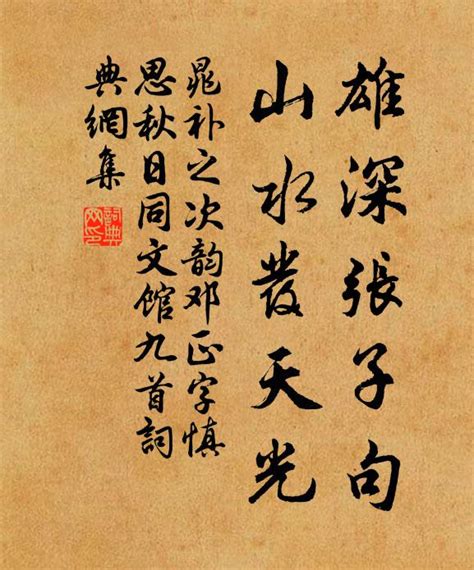 雄深張子句
山水發天光
晁补之次韵邓正字慎
思秋日同文馆九首詞
典網集
詞典
网印